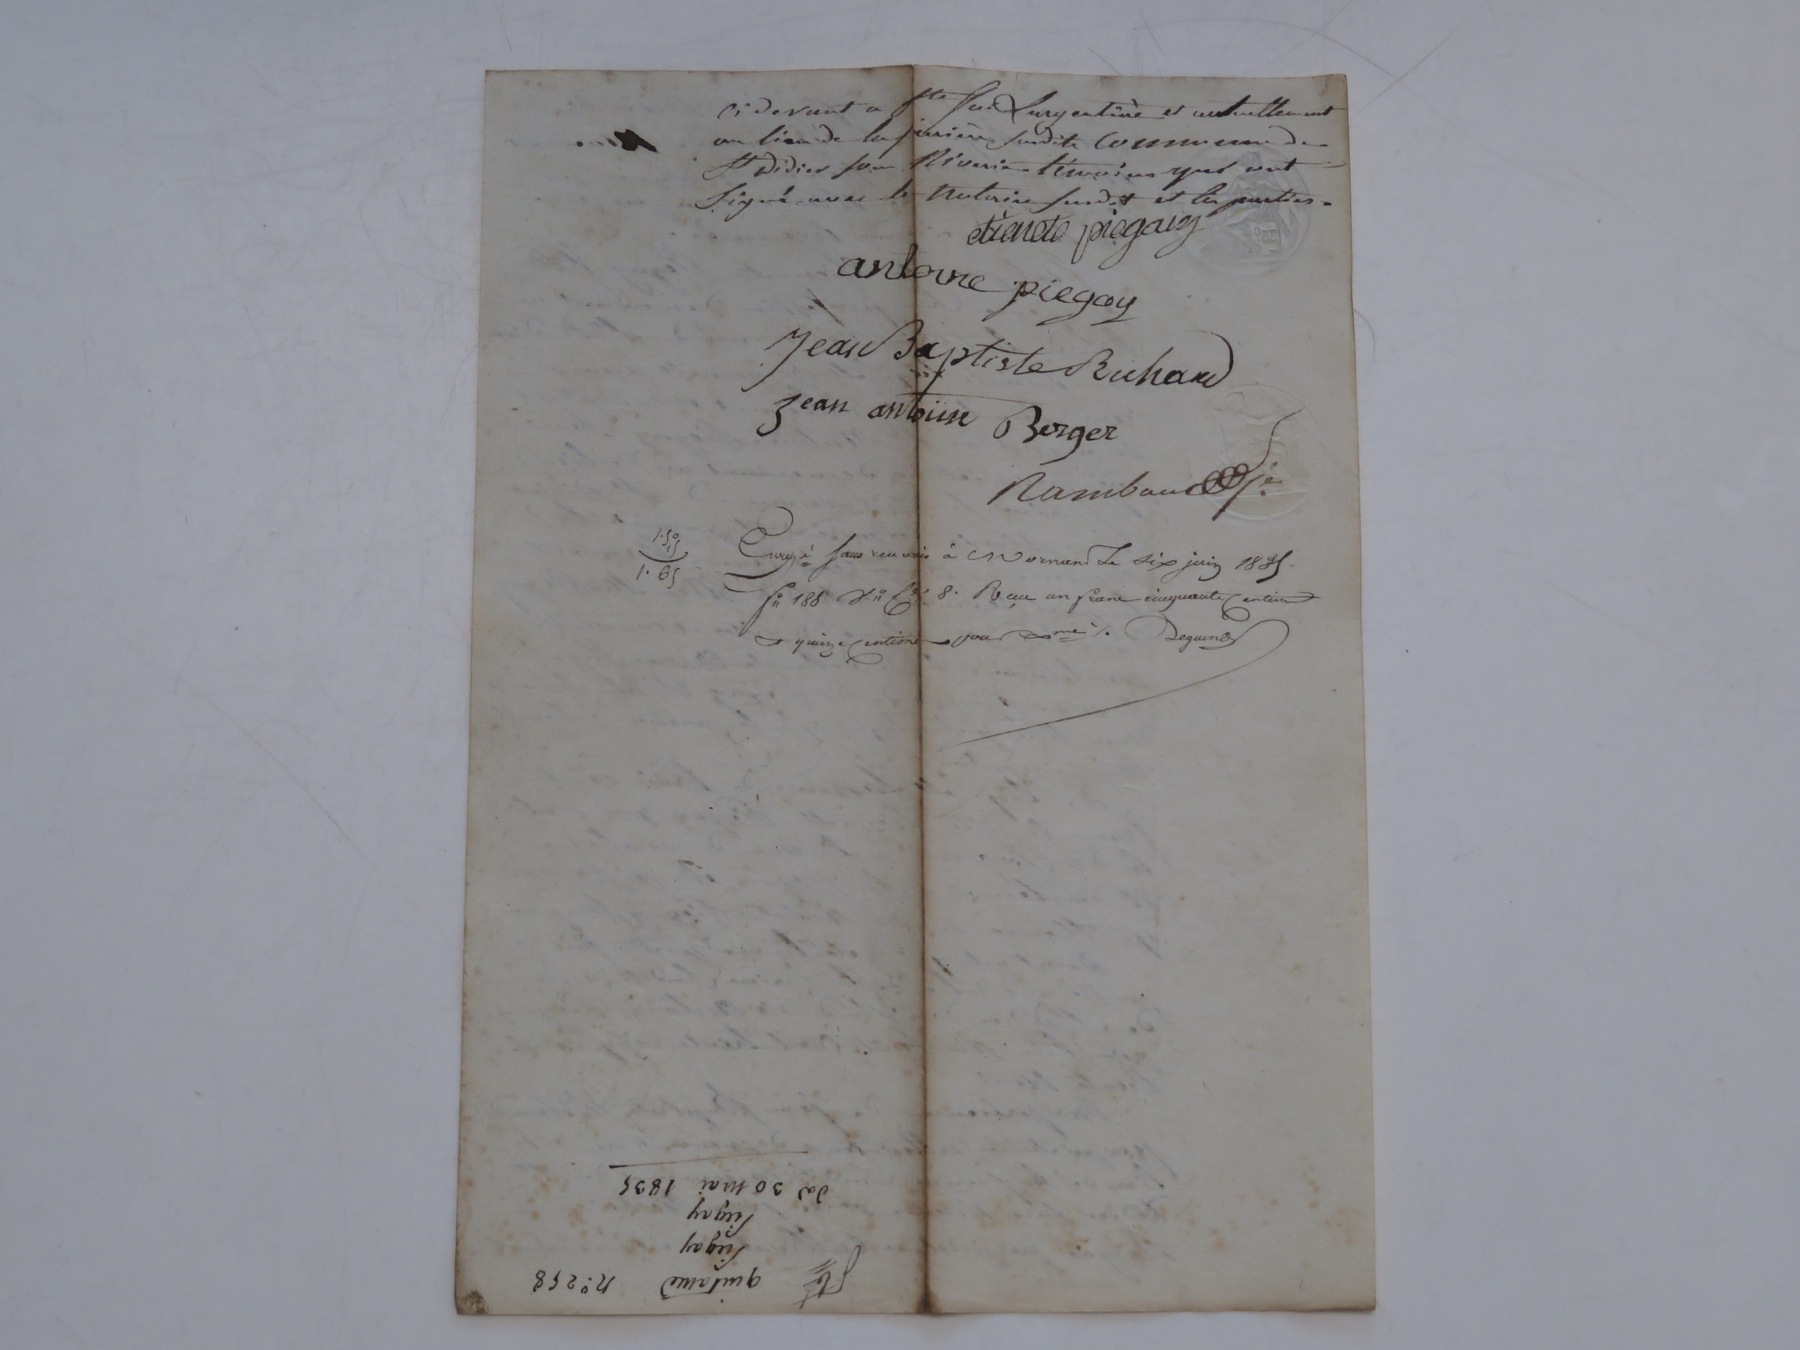 ci devant a Ste foi Largentière et actuellement
au lieu de la susdite commune de
St Didier sous Riverie témoins qui ont
signé avec le notaire susdit et les parties.
piegay
antoine piegay
Jean Baptiste Richard
Jean antoine Berger
Rambaud
1.50
15
1.65
sans renvois à Mornand le six juin 1835.
fo 188 8. Reçu un franc cinquante centimes
quinze centimes pour
du 30 mai 1835
piegay
piegay
quittance no 258